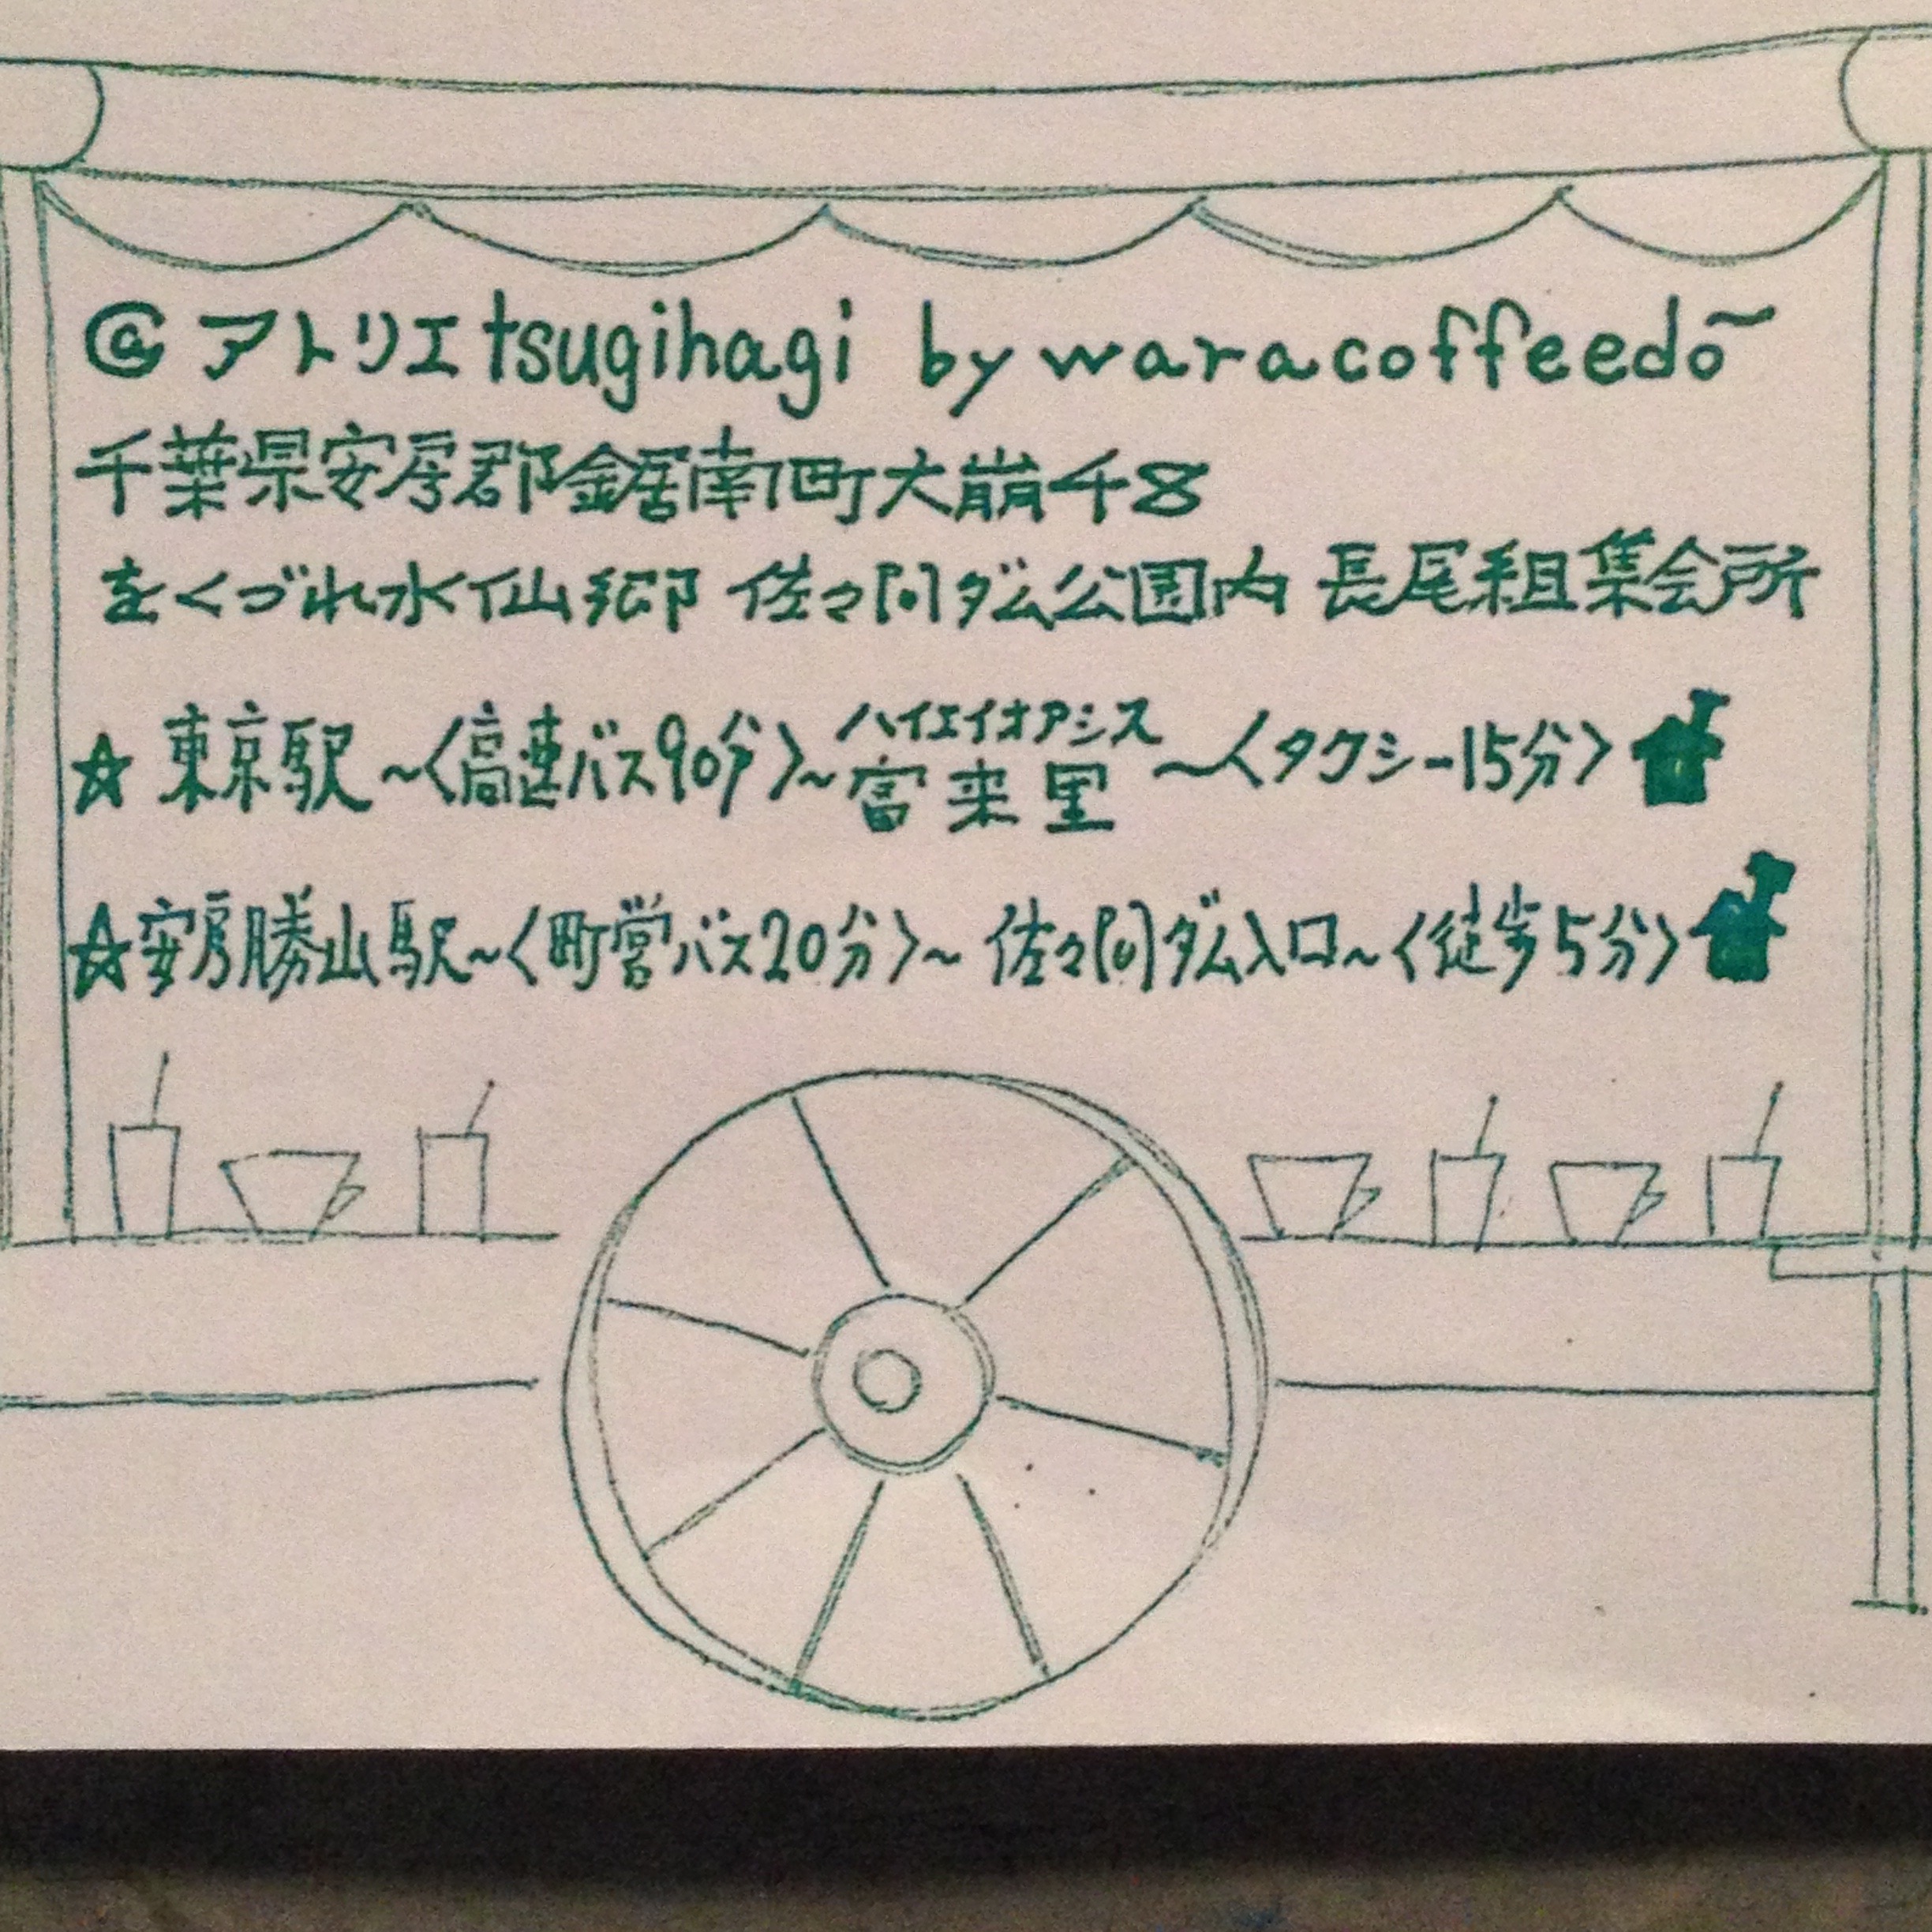 @アトリエtsugihagi by waracoffeedo~
千葉県安房郡鋸南町大崩48
をくづれ水仙郷 佐々間ダム公園内 長尾組集会所
☆東京駅~〈高速バス90分〉~富来里~〈タクシー15分〉
ハイエイオアシス
☆安房勝山駅~〈町営バス20分〉~佐々間ダム入口~〈徒歩5分〉